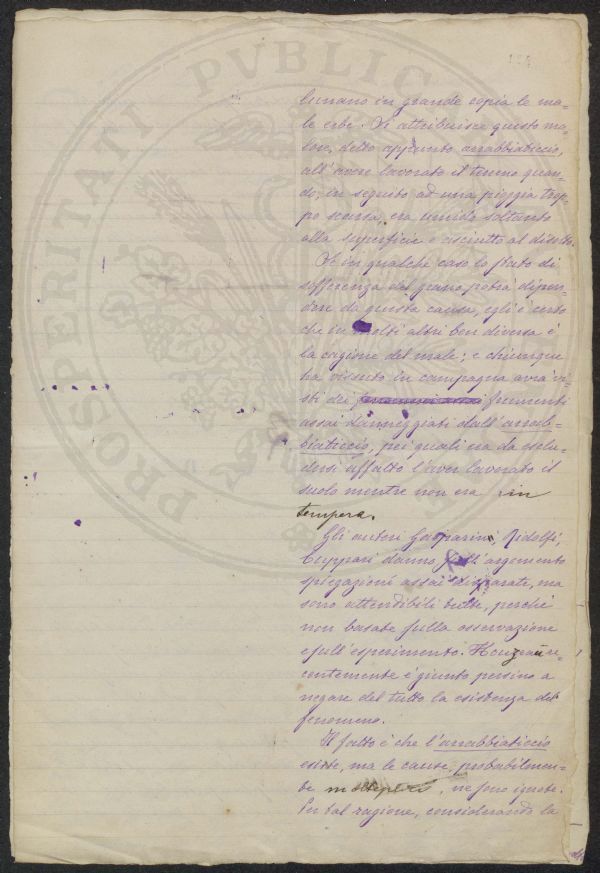 lunano in grande copia le ma-
le erbe. Si attribuisce questo ma-
lore, detto appunto arrabbiaticcio,
all'avere lavorato il terreno quan-
do, in seguito ad una pioggia trop-
po scarsa, era umido soltanto
alla superficie e asciutto al disotto.
Se in qualche caso lo stato di
sofferenza del grano potrà dipen-
dere da questa causa, egli è certo
che in molti altri ben diversa è
la cagione del male; e chiunque
ha vissuto in campagna avrà vi-
sti dei frumenti
assai danneggiati dall'arrab-
biaticcio, pei quali era da esclu-
dersi affatto l'aver lavorato il
suolo mentre non era in
tempera.
Gli autori Gasparini, Ridolfi,
Cuppari danno sull'argomento
spiegazioni assai disparate, ma
sono attendibili tutte, perchè
non basate sulla osservazione
e sull'esperimento. Houzeau re-
centemente è giunto persino a
negare del tutto la esistenza del
fenomeno.
Il fatto è che l'arrabbiaticcio
esiste, ma le cause, probabilmen-
te molteplici, ne sono ignote.
Per tal ragione, considerando la
PROSPERITATI PVBLICAE